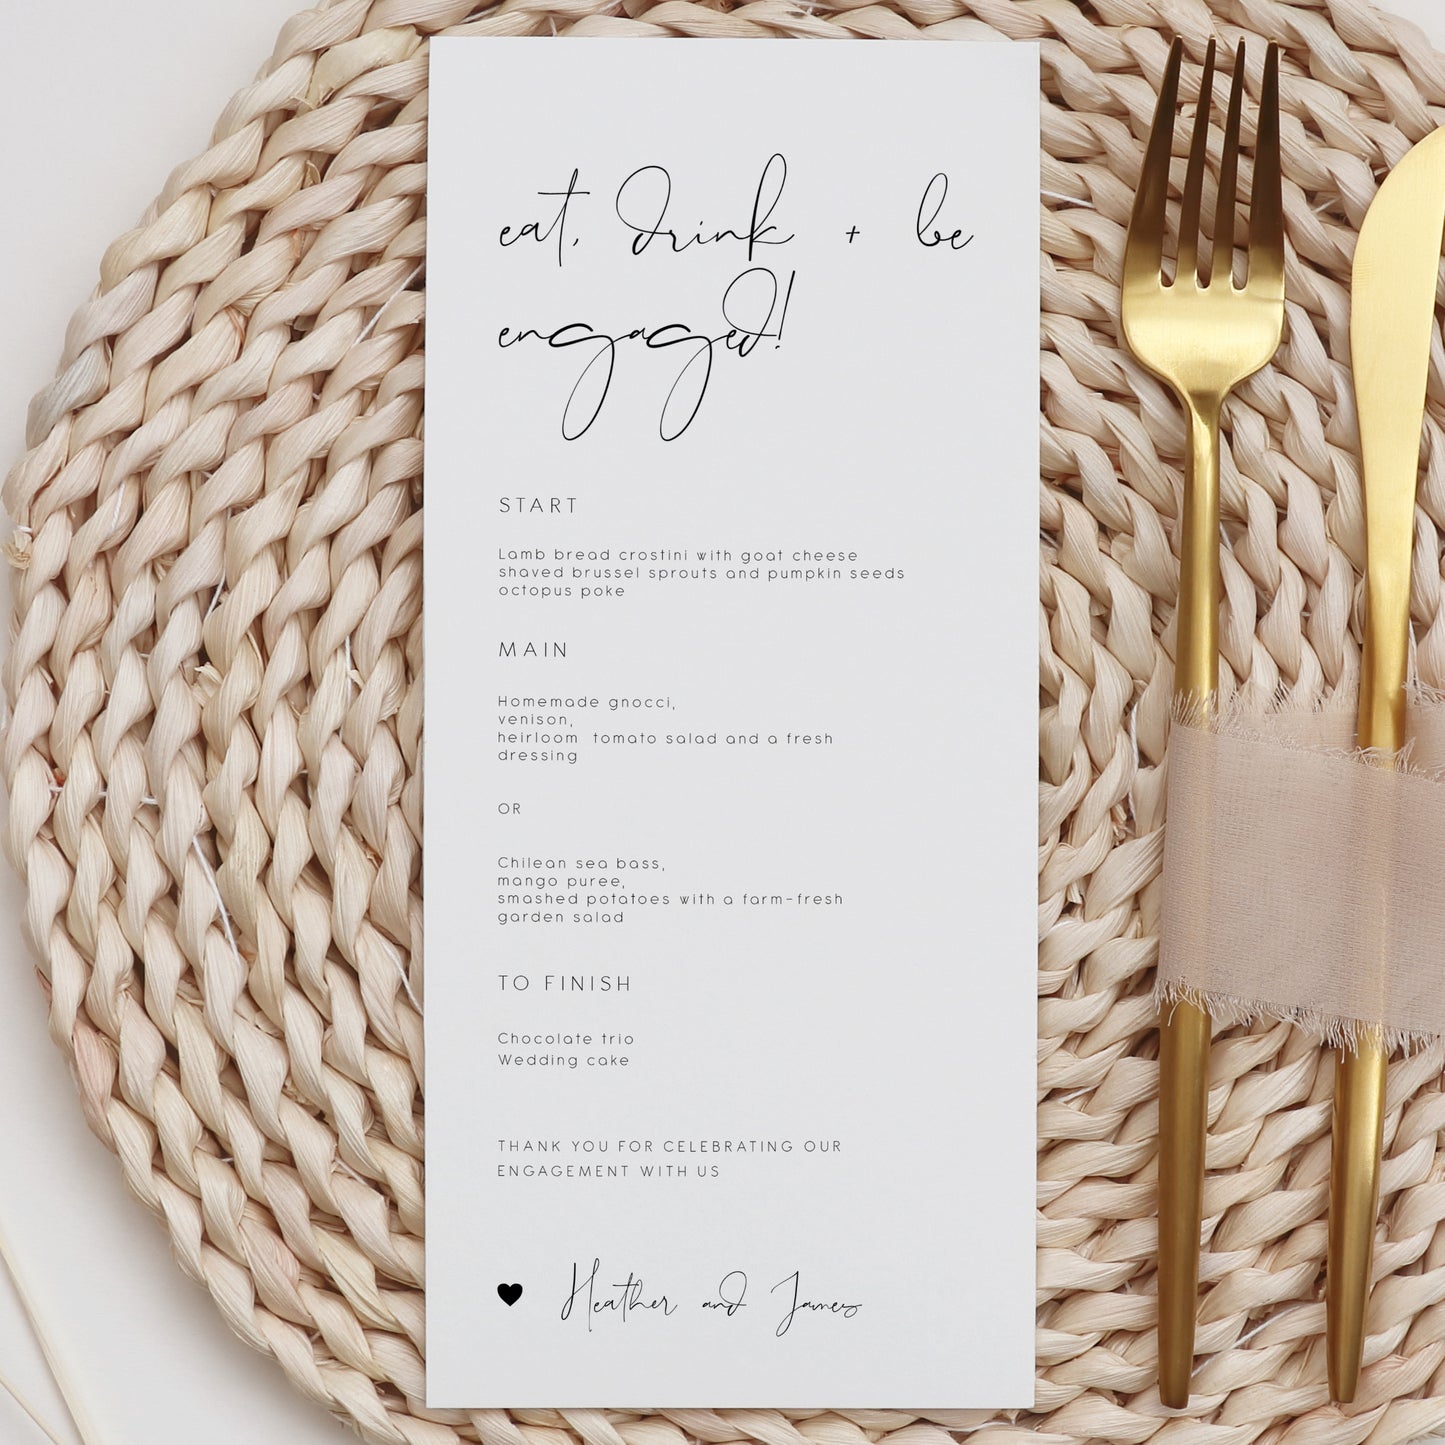 eat, drink + be
engaged!
START
Lamb bread crostini with goat cheese
shaved brussel sprouts and pumpkin seeds
octopus poke
MAIN
Homemade gnocci,
venison,
heirloom tomato salad and a fresh
dressing
OR
Chilean sea bass,
mango puree,
smashed potatoes with a farm-fresh
garden salad
TO FINISH
Chocolate trio
Wedding cake
THANK YOU FOR CELEBRATING OUR
ENGAGEMENT WITH US
♥ Heather and James